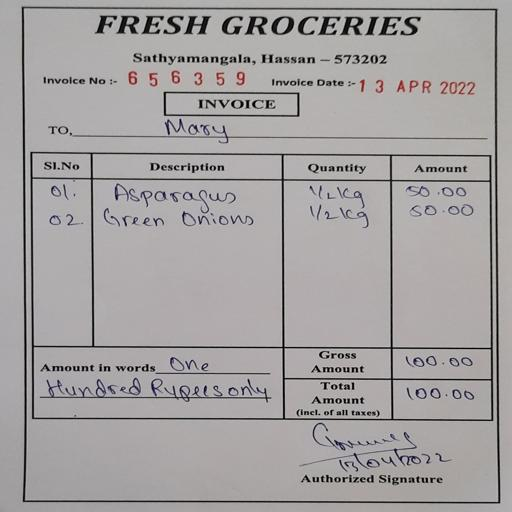 FRESH GROCERIES
Sathyamangala, Hassan – 573202
Invoice No :- 656359 Invoice Date :- 13 APR 2022
INVOICE
TO, Mary
Sl.No Description Quantity Amount
01. Asparagus 1/2 kg 50.00
02. Green Onions 1/2 kg 50.00
Amount in words One
Hundred Rupees only
Gross Amount 100.00
Total Amount (incl. of all taxes) 100.00
13/04/2022
Authorized Signature